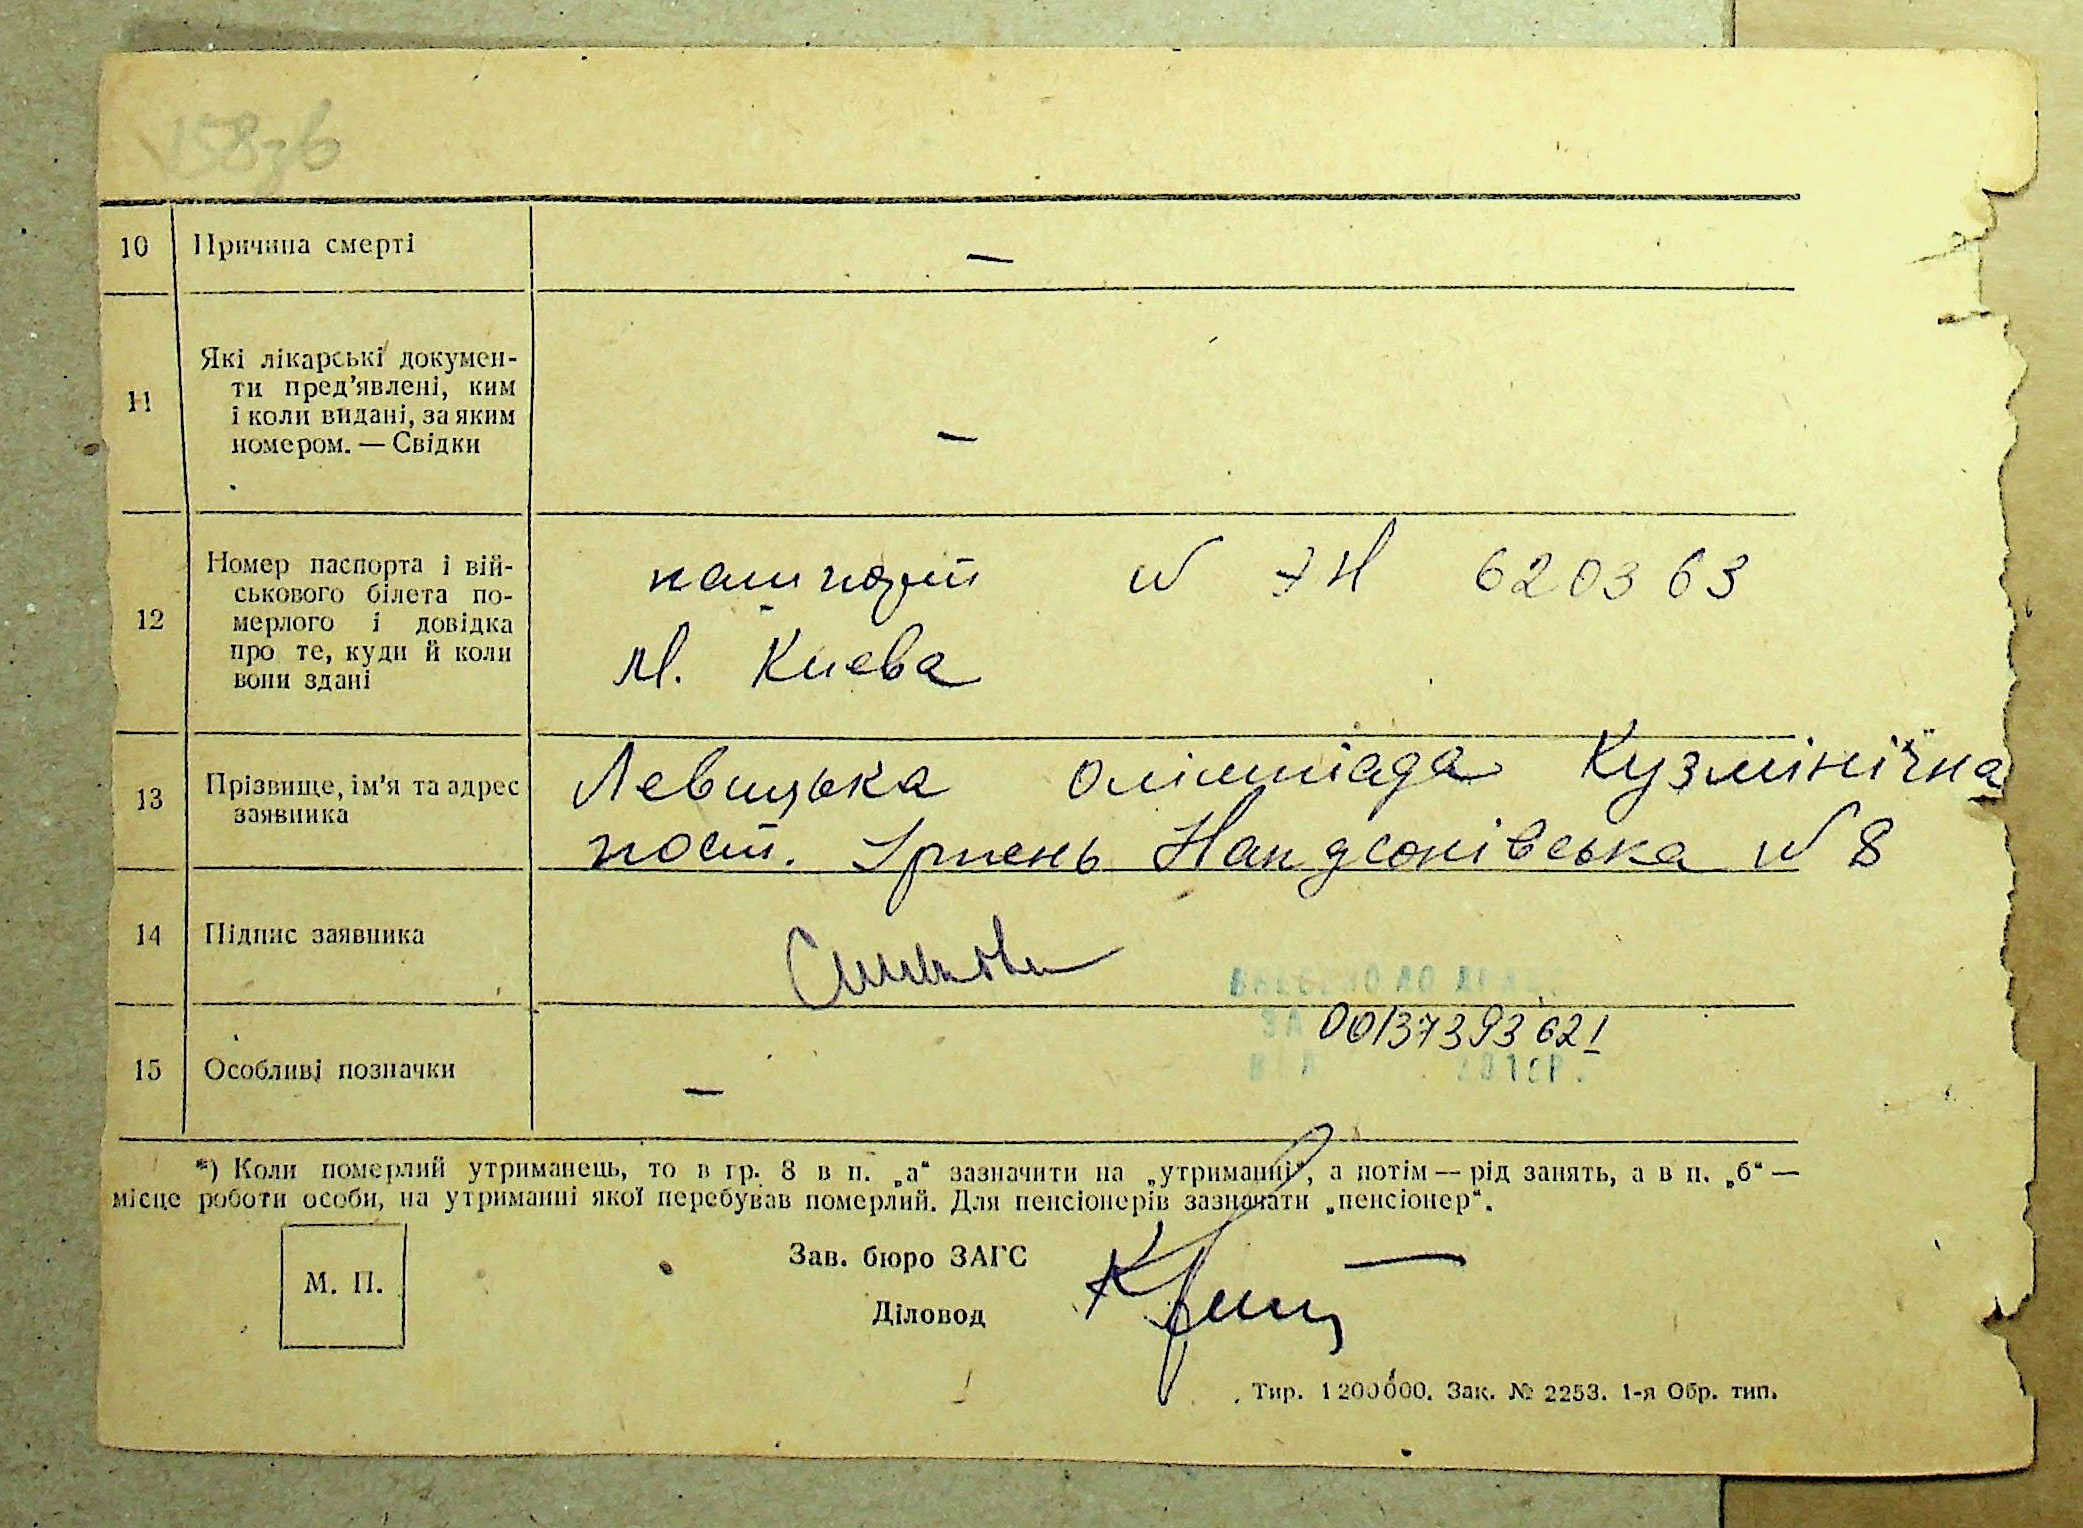 158зв
10 Причина смерті —
11 Які лікарські докумен-
ти пред'явлені, ким
і коли видані, за яким
номером. — Свідки —
12 Номер паспорта і вій-
ськового білета по-
мерлого і довідка
про те, куди й коли
вони здані
пашпорт № 620363
М. Києва
13 Прізвище, ім'я та адрес
заявника
Левицька Олімпіада Кузмінічна
пост. Ірпень Нандсонівська № 8
14 Підпис заявника
00137393621
15 Особливі позначки —
*) Коли померлий утриманець, то в гр. 8 в п. „а“ зазначити на „утриманні“, а потім — рід занять, а в п. „б“ —
місце роботи особи, на утриманні якої перебував померлий. Для пенсіонерів зазначати „пенсіонер“.
М. П.
Зав. бюро ЗАГС
Діловод
Тир. 1200000. Зак. № 2253. 1-я Обр. тип.